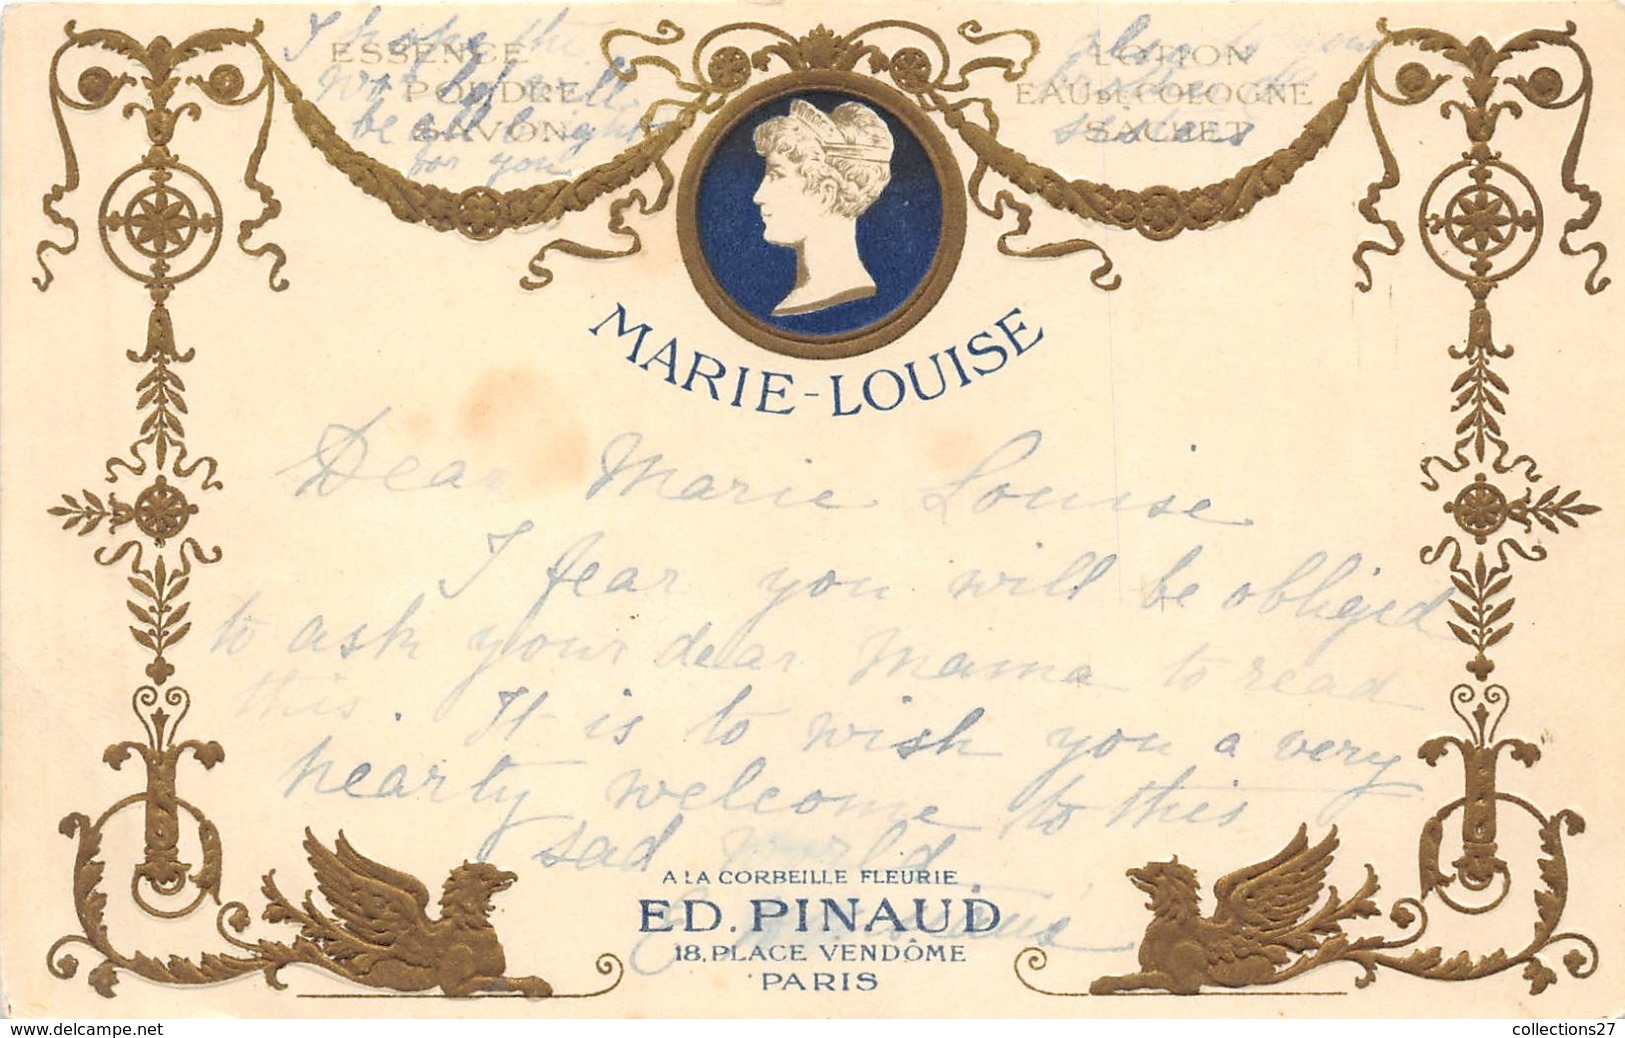 I hope the
world will
be all bright
for you
also to your
brother &
sisters
ESSENCE
POUDRE
SAVON
LOTION
EAU DE COLOGNE
SACHET
MARIE-LOUISE
Dear Marie Louise
I fear you will be obliged
to ask your dear Mama to read
this. It is to wish you a very
hearty welcome to this
sad world
A LA CORBEILLE FLEURIE
ED. PINAUD
18, PLACE VENDÔME
PARIS
www.delcampe.net
collections27